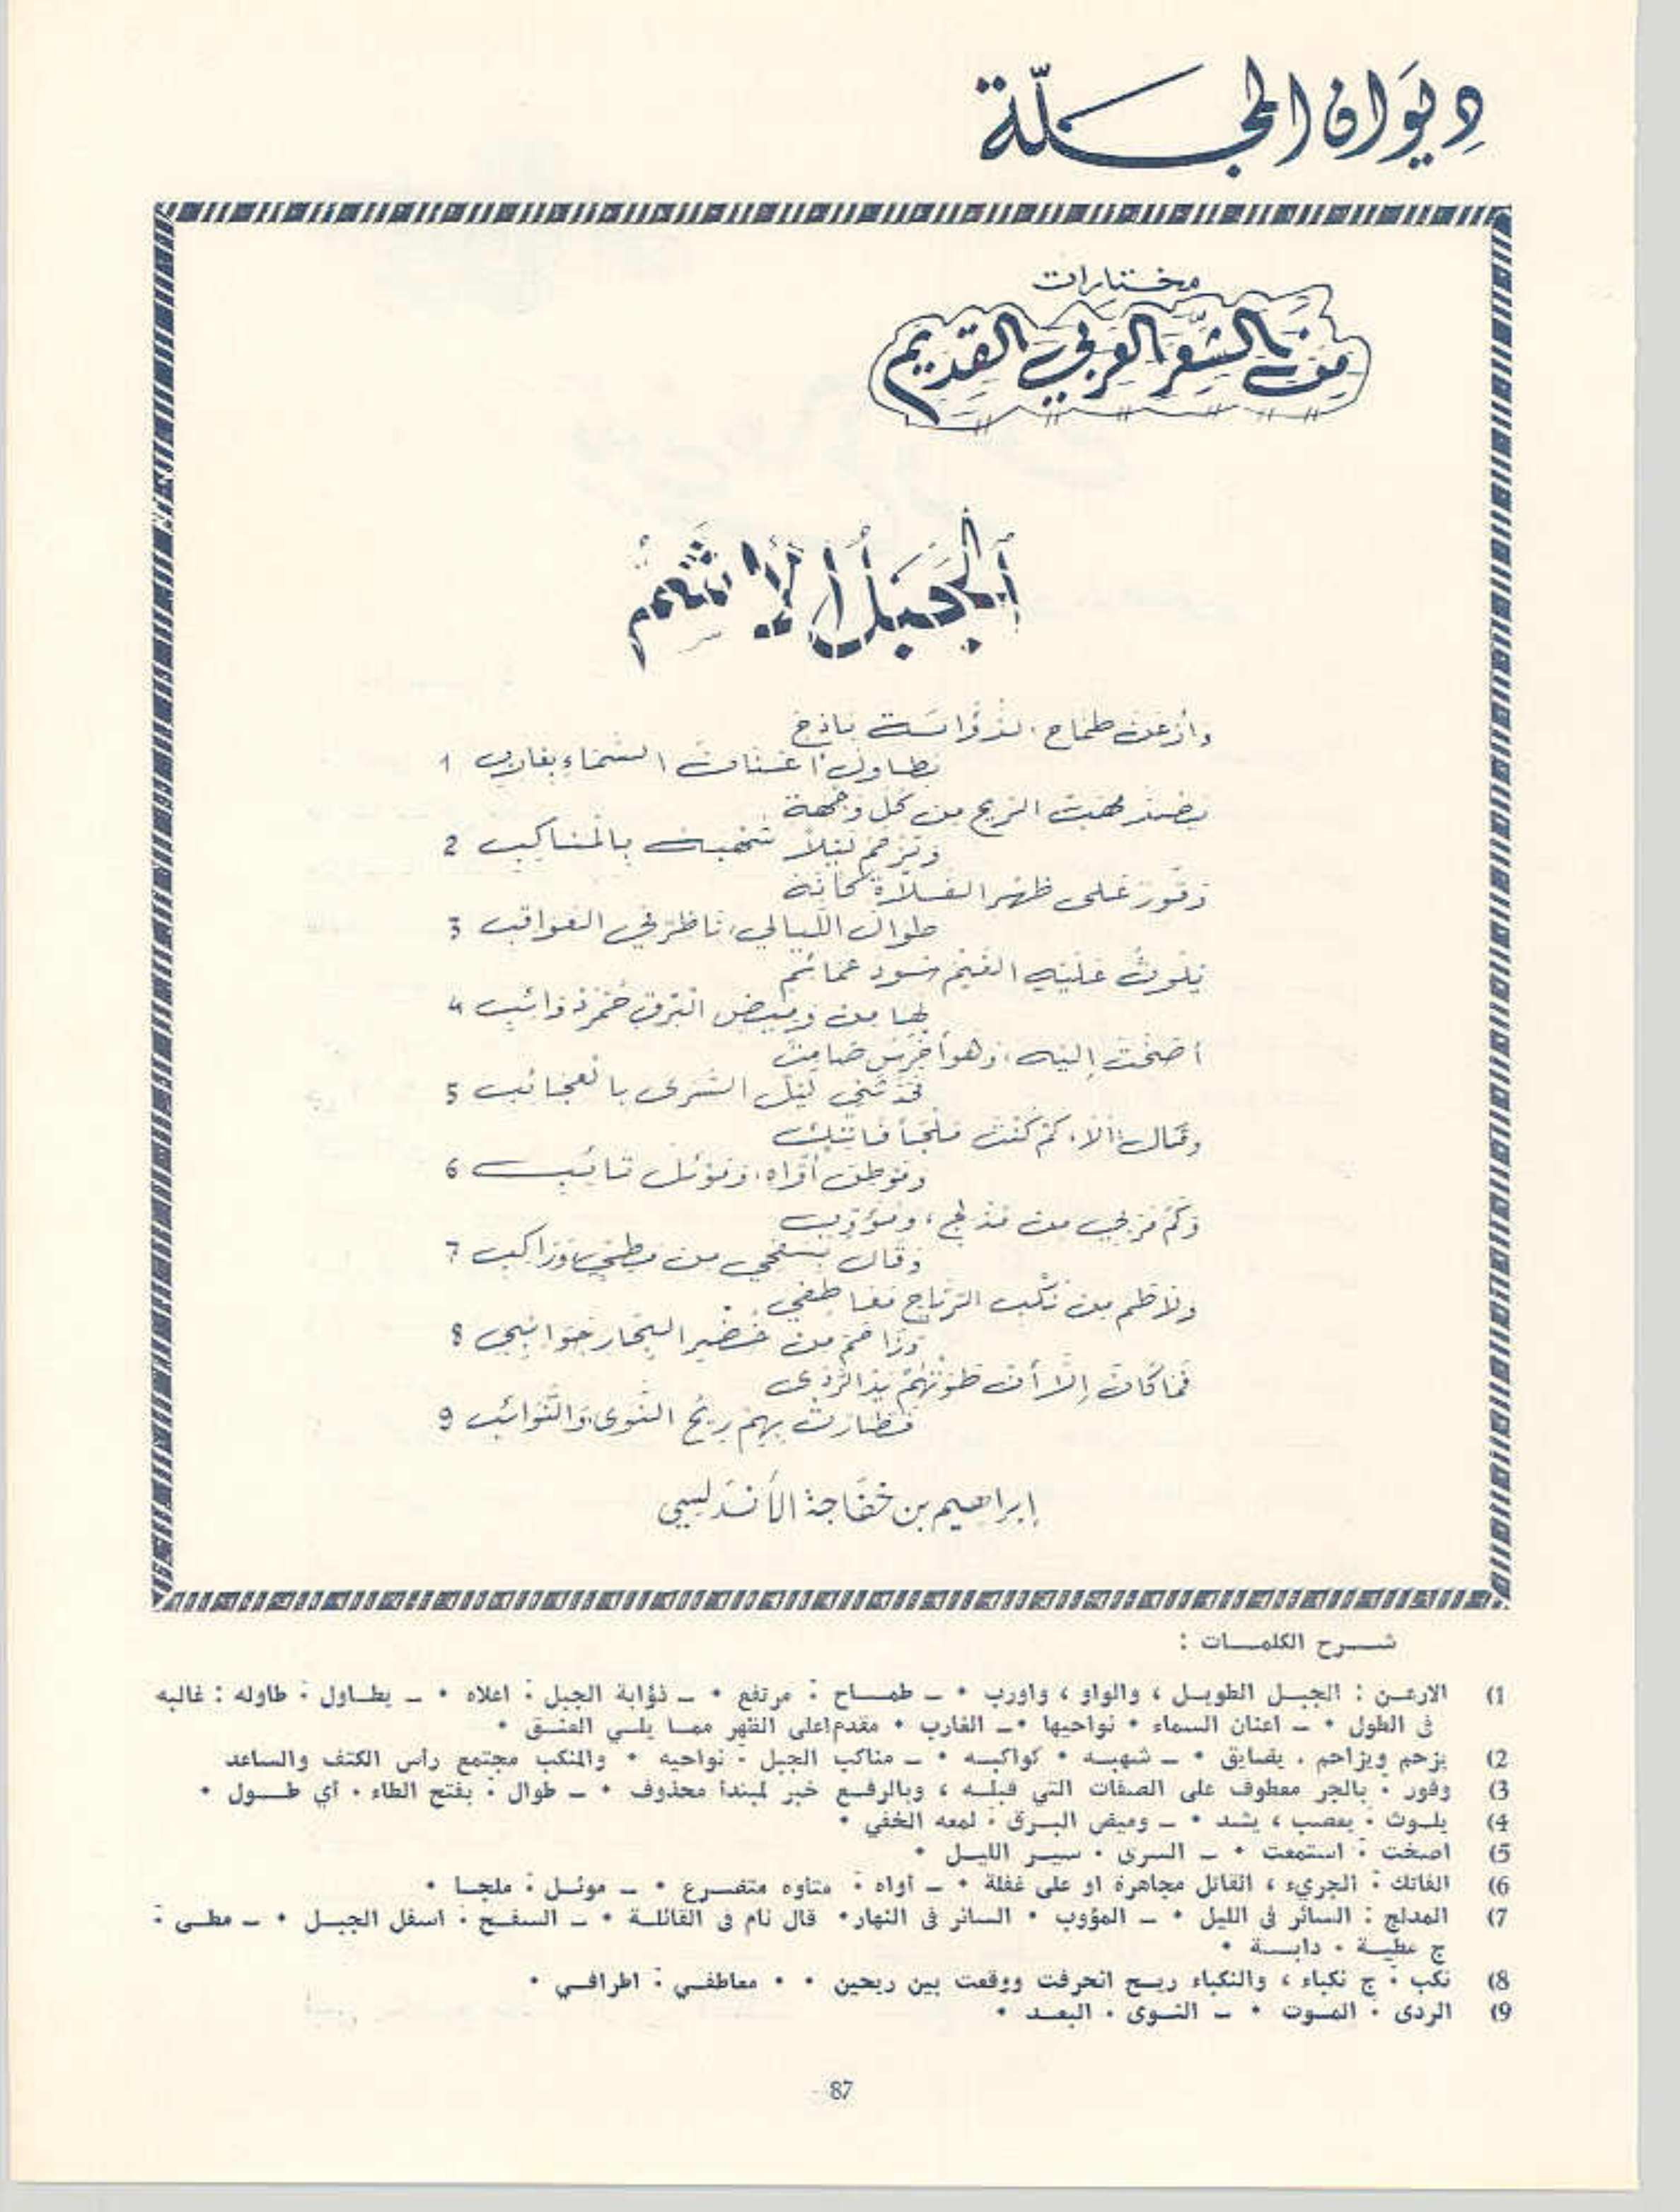 ديوان المجلّة
مختارات
من الشعر العربي القديم
ألجبل الأشم
وأرعن طماح الذؤابة باذخ
يطاول أعنان السماء بغارب 1
يصد مهب الريح من كل وجهة
ويزحم ليلا شهبه بالمناكب 2
وقور على ظهر الفلاة كأنه
طوال الليالي، ناظر في العواقب 3
يلوث عليه الغيم سود عمائم
لها من وميض البرق حمر ذوائب 4
أصخت إليه، وهو أخرس صامت
فحدثني ليل السرى بالعجائب 5
وقال: ألا، كم كنت ملجأ فاتك
وموطن أواه، وموئل تائب 6
وكم مر بي من مدلج، ومؤوب
وقال بسفحي من مطي وراكب 7
ولاطم من نكب الرياح معاطفي
وزاحم من خضر البحار جوانبي 8
فما كان إلا أن طوتهم يد الردى
فطارت بهم ريح النوى والنوائب 9
إبراهيم بن خفاجة الأندلسي
شـرح الكلمـات :
1) الارعـن : الجبـل الطويـل ، والواو ، واورب • ـ طمـاح : مرتفع • ـ ذؤابة الجبل : اعلاه • ـ يطـاول : طاوله : غالبه
فى الطول • ـ اعنان السماء • نواحيها •ـ الغارب • مقدم اعلى الظهر ممـا يلـي العنـق •
2) يزحم ويزاحم . يضايق • ـ شهبـه • كواكبـه • ـ مناكب الجبل : نواحيه • والمنكب مجتمع رأس الكتف والساعد
3) وقور : بالجر معطوف على الصفات التي قبلـه ، وبالرفـع خبر لمبتدأ محذوف • ـ طوال : بفتح الطاء . أي طـول •
4) يلـوث : يعصب ، يشد • ـ وميض البـرق : لمعه الخفي •
5) اصخت : استمعت • ـ السرى . سيـر الليـل •
6) الفاتك : الجريء ، القاتل مجاهرة او على غفلة • ـ أواه : متاوه متضـرع • ـ موئـل : ملجـا •
7) المدلج : السائر فى الليل • ـ المؤوب • السائر فى النهار• قال نام فى القائلـة • ـ السفـح : اسفل الجبـل • ـ مطـى :
ج مطيـة . دابـة •
8) نكب : ج نكباء ، والنكباء ريـح انحرفت ووقعت بين ريحين • • معاطفـي : اطرافـي •
9) الردى : المـوت • ـ النـوى . البعـد •
87